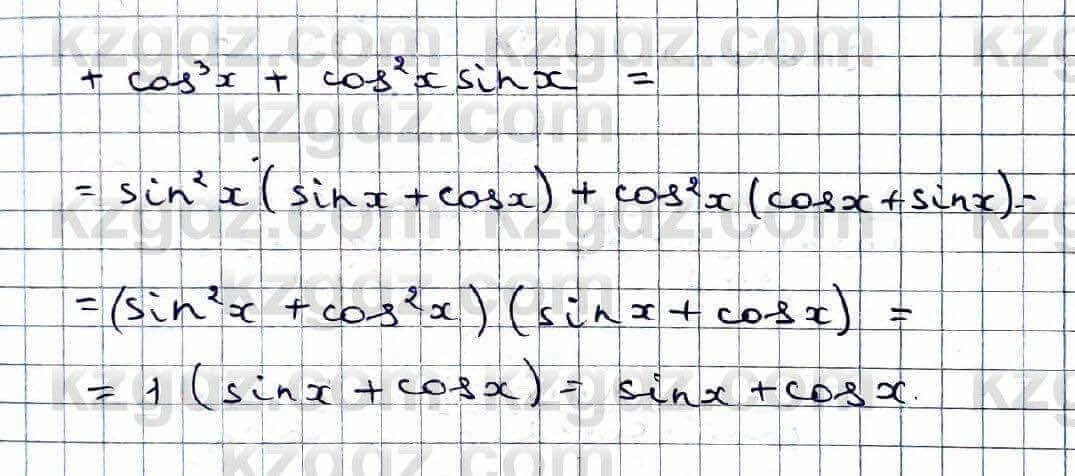 kzgdz.com kzgdz.com kzg
+ cos³x + cos²x sinx =
kzgdz.com
= sin²x (sinx + cosx) + cos²x (cosx + sinx) =
kzgdz.com kzgdz.com kzg
= (sin²x + cos²x) (sinx + cosx) =
kzgdz.com
= 1 (sinx + cosx) = sinx + cosx.
kzgdz.com kzgdz.com kzg
kzgdz.com